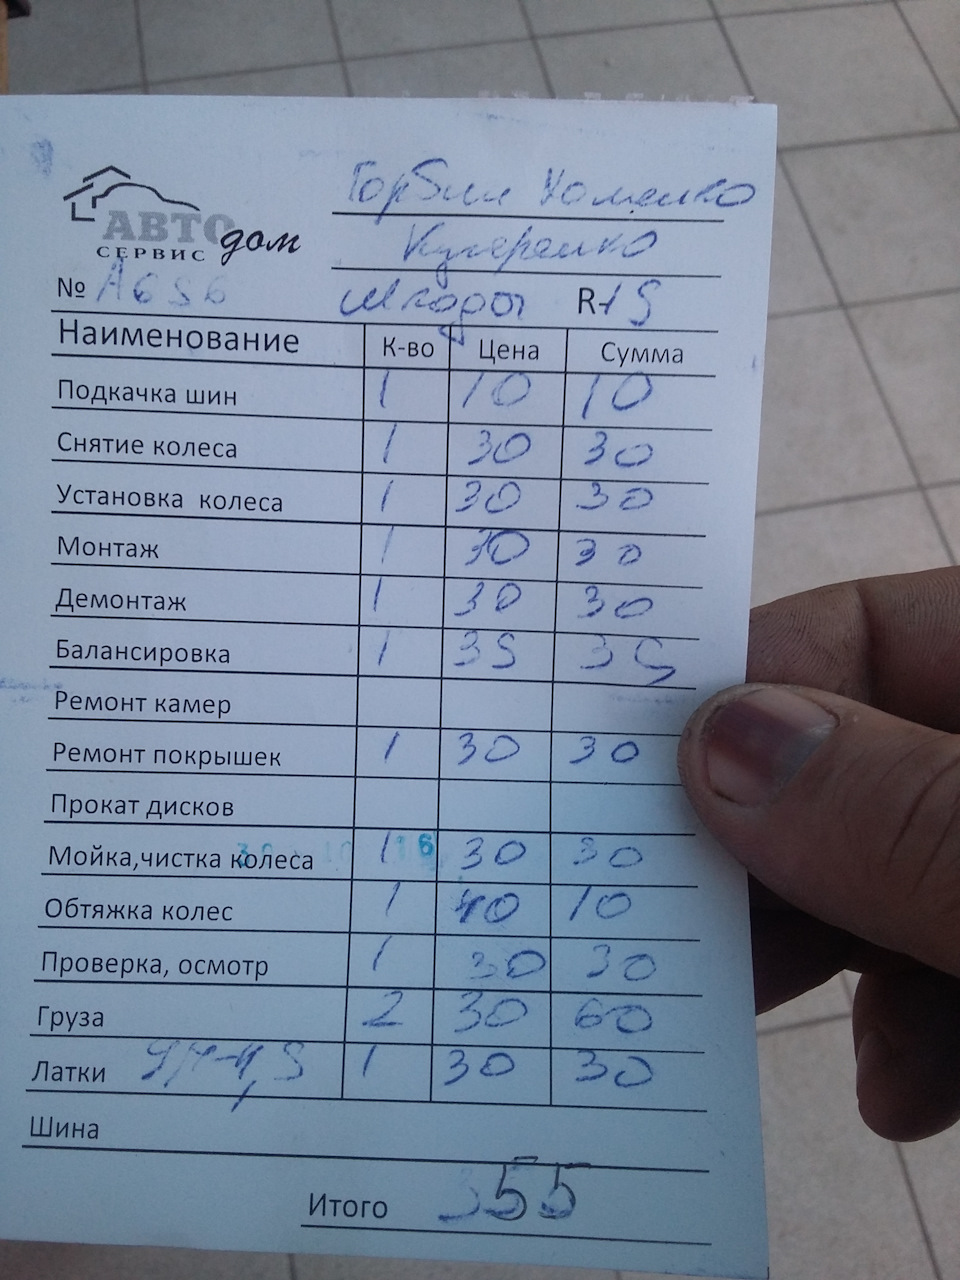 Горбин Хоменко
АВТО дом
СЕРВИС
Кучеренко
№ А656 Шкода R15
Наименование К-во Цена Сумма
Подкачка шин 1 10 10
Снятие колеса 1 30 30
Установка колеса 1 30 30
Монтаж 1 30 30
Демонтаж 1 30 30
Балансировка 1 35 35
Ремонт камер
Ремонт покрышек 1 30 30
Прокат дисков
Мойка,чистка колеса 1 30 30
Обтяжка колес 1 10 10
Проверка, осмотр 1 30 30
Груза 2 30 60
Латки 1 30 30
Шина
Итого 355